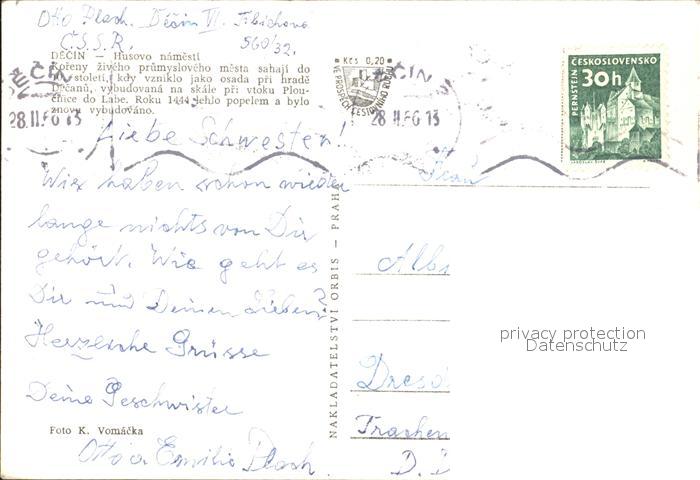 Otto Plach. Děčín VI. Fibichova
Č.S.S.R. 560/32.
DĚČÍN — Husovo náměstí
Kořeny živého průmyslového města sahají do
století, kdy vzniklo jako osada při hradě
Děčanů, vybudovaná na skále při vtoku Plou-
čnice do Labe. Roku 1444 lehlo popelem a bylo
znovu vybudováno.
Kčs 0,20
VE PROSPĚCH CESTOVNÍHO RUCHU
DĚČÍN
28.II.66-13
DĚČÍN
28.II.66-13
ČESKOSLOVENSKO
PERNŠTEJN
30h
Liebe Schwester!
Wir haben schon wieder
lange nichts von Dir
gehört. Wie geht es
Dir und Deinen Lieben?
Herzliche Grüsse
Deine Geschwister
Otto a Emilie Plach.
Foto K. Vomáčka
NAKLADATELSTVÍ ORBIS — PRAHA
Frau
Alb
Dresd
Trachen
D.
privacy protection
Datenschutz